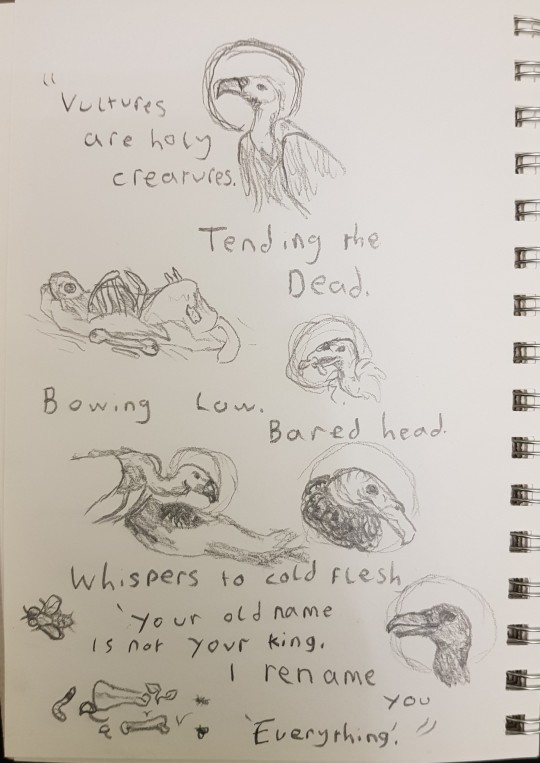 "Vultures
are holy
creatures.
Tending the
Dead.
Bowing Low.
Bared head.
Whispers to cold flesh
'your old name
is not your king.
I rename
you
'Everything'."